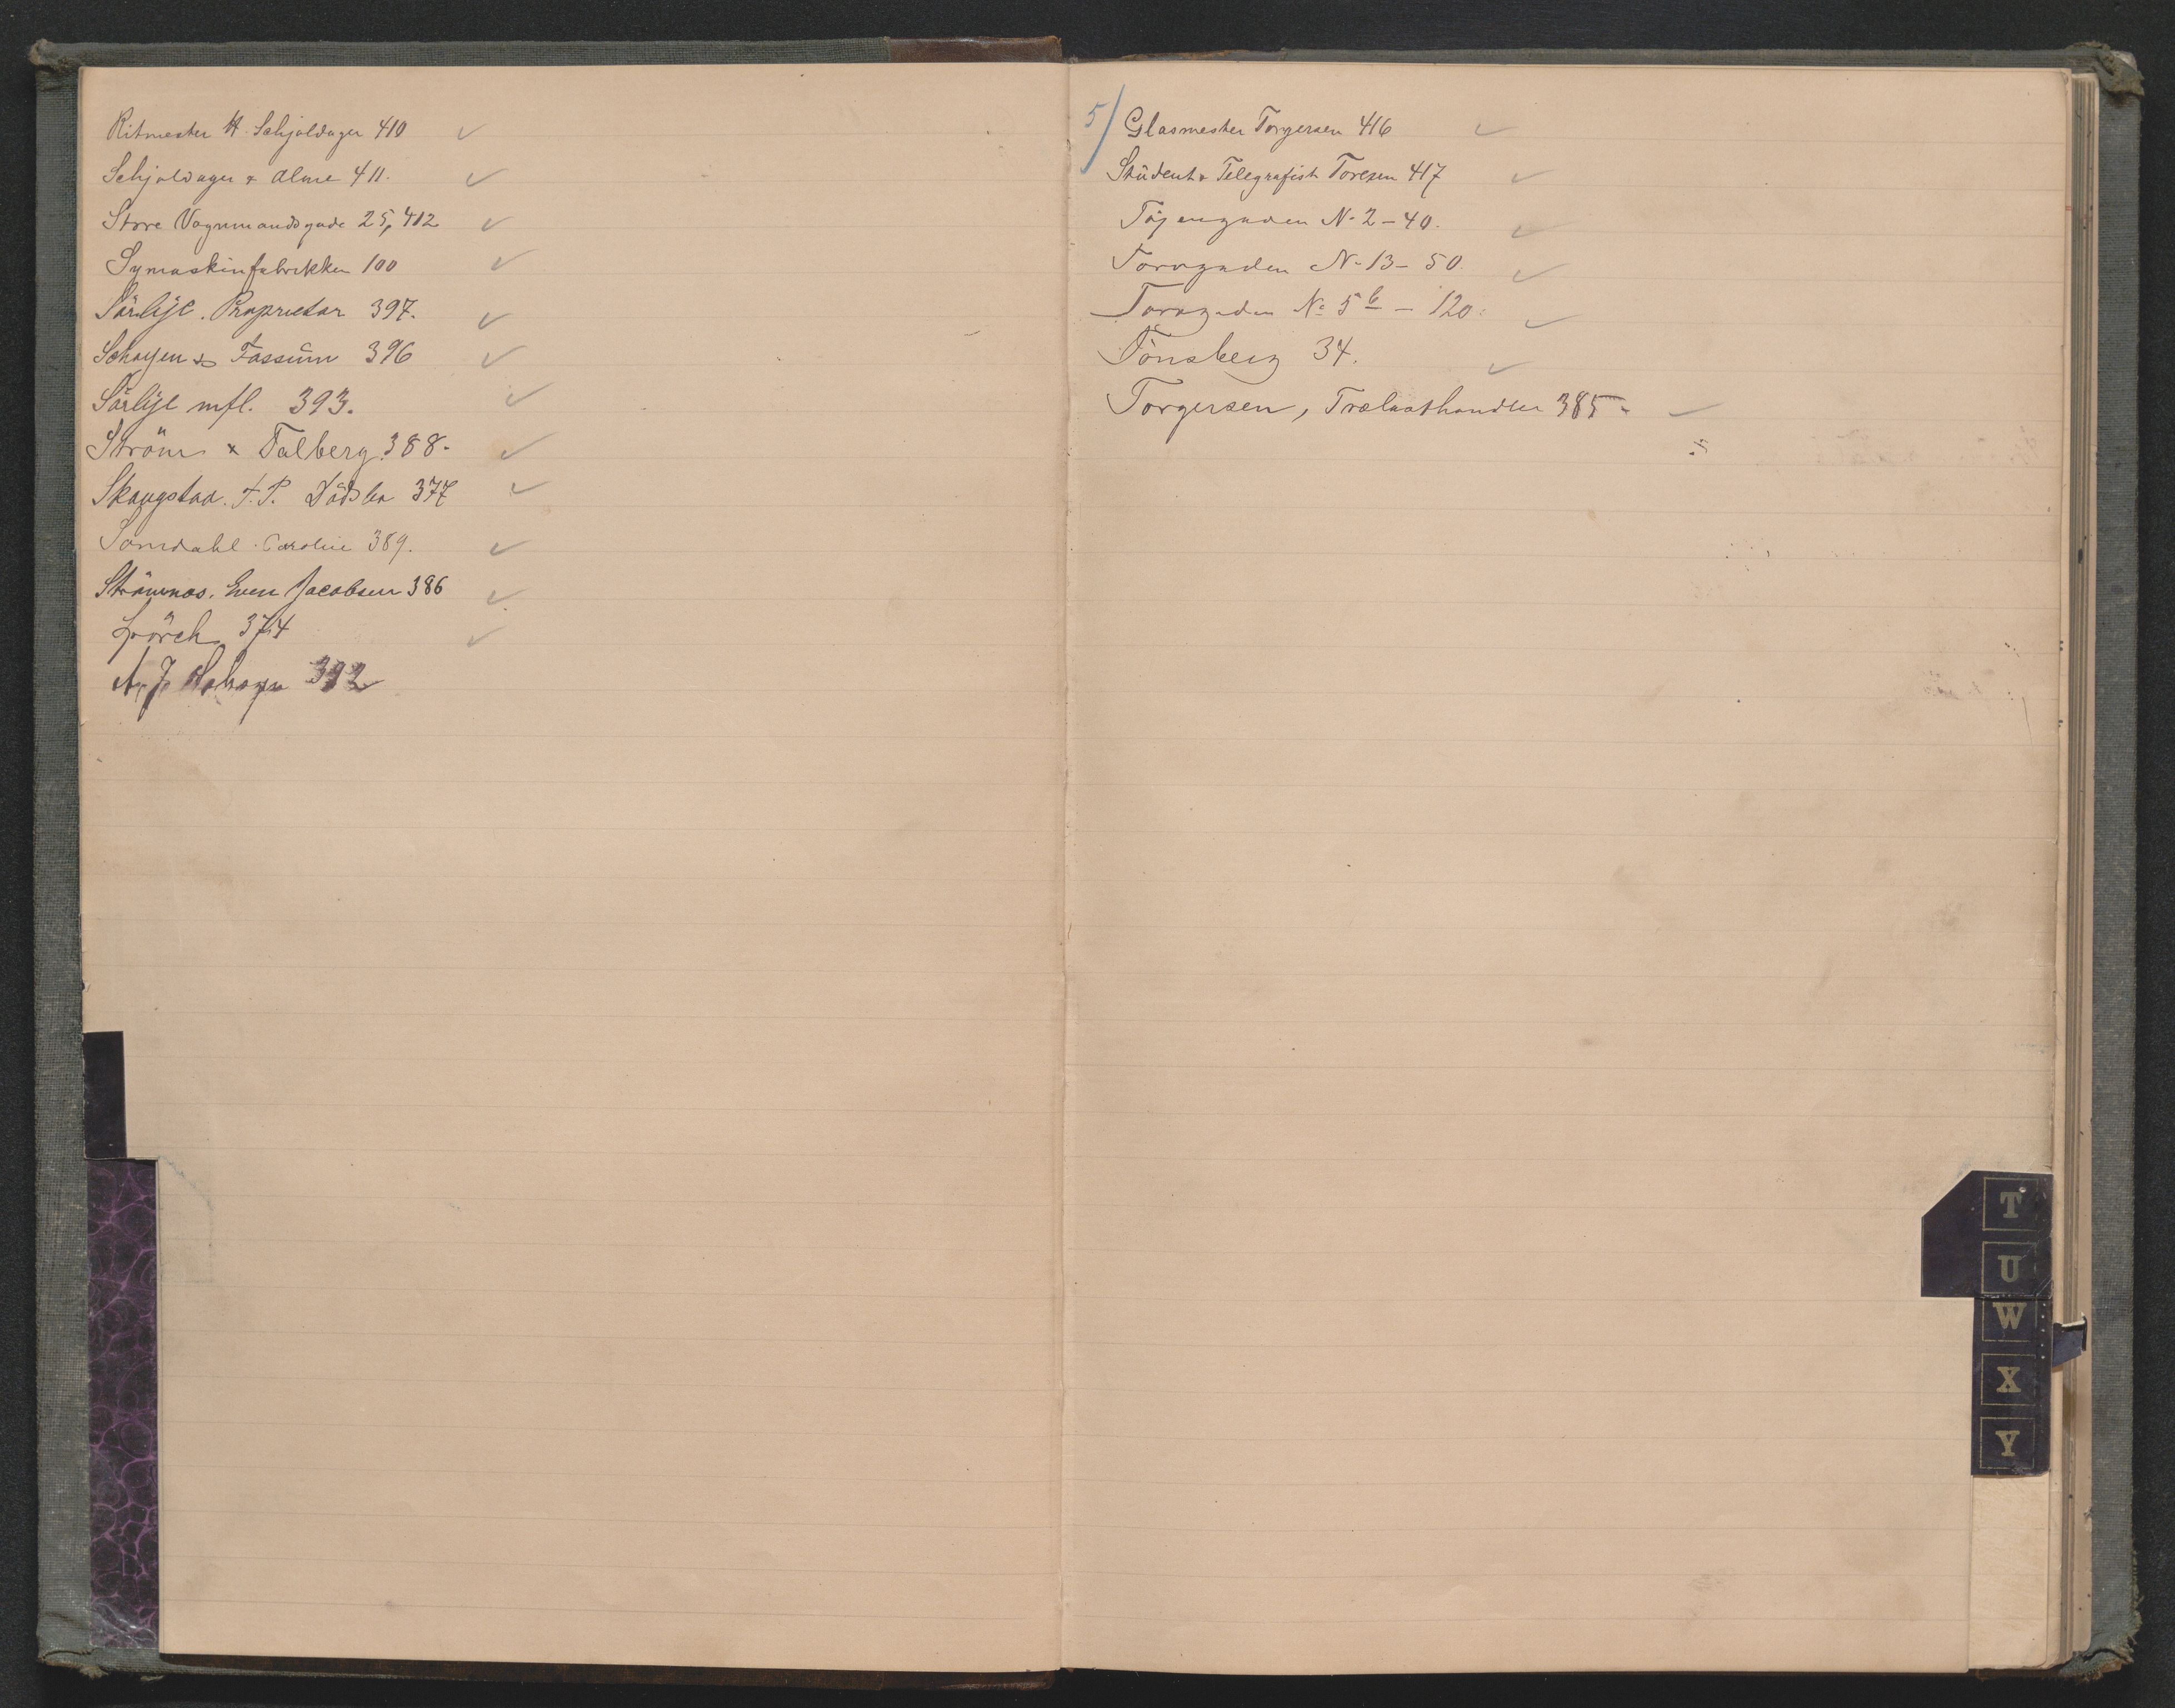 Ritmester H. Schjoldager 410 ✓
Schjoldager & Alme 411. ✓
Store Vognmandsgade 25, 412 ✓
Symaskinfabrikken 100 ✓
Sörlije. Proprietær 397. ✓
Schøyen & Fossüm 396 ✓
Sörlije mfl. 393. ✓
Ström & Dalberg 388. ✓
Skaugstad. F. P. 377 ✓
Somdahl. Caroline 389. ✓
Strömnes. Even Jacobsen 386 ✓
374 ✓
A. J. Schøyen 392
5/ Glasmester Torgersen 416 ✓
Stüdent & Telegrafist Toresen 417 ✓
Töjengaden No 2 - 40. ✓
Torvgaden No 13 - 50. ✓
Torvgaden No 5 b - 120. ✓
Tönsberg 34. ✓
Torgersen, Trælasthandler 385 - ✓
T
U
W
X
Y